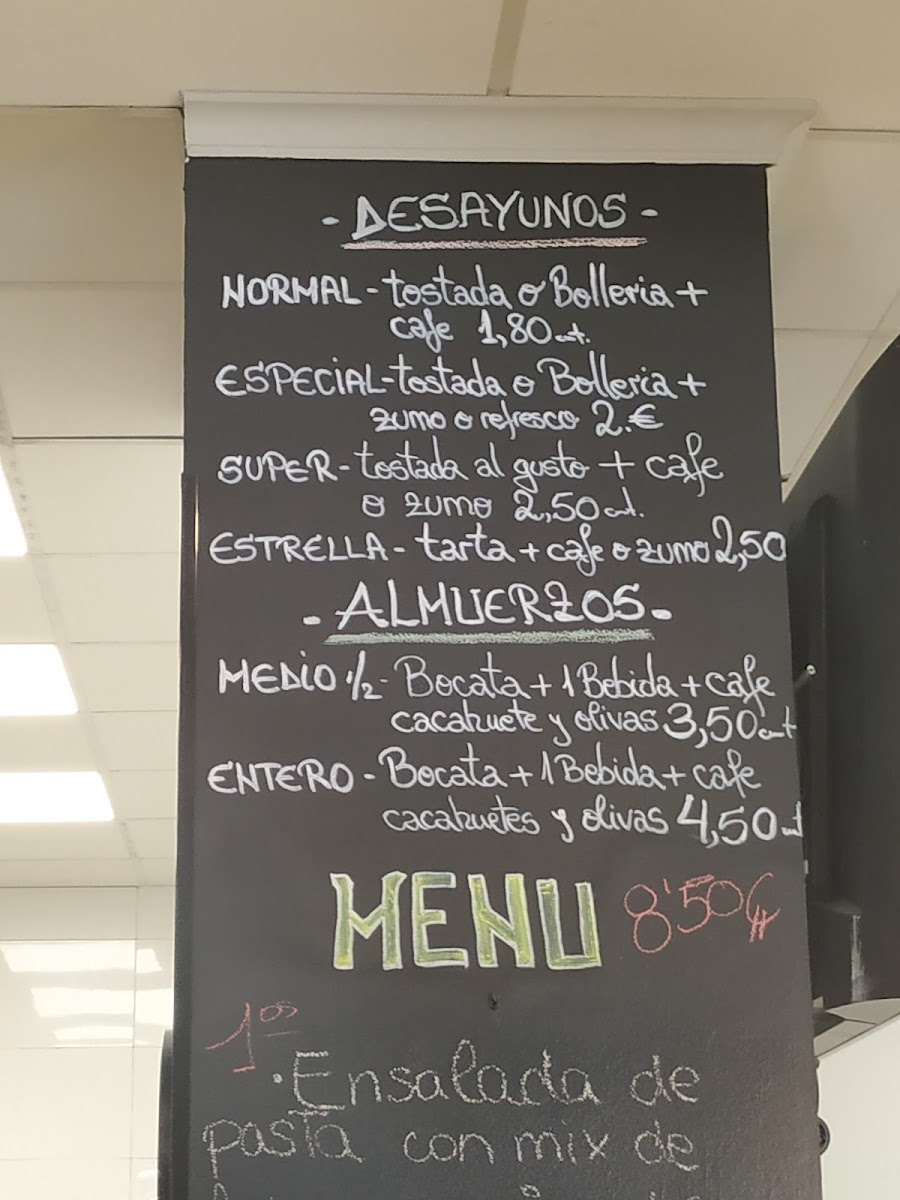 - DESAYUNOS -
NORMAL - tostada o Bolleria +
cafe 1,80 cnt.
ESPECIAL - tostada o Bolleria +
zumo o refresco 2.€
SUPER - tostada al gusto + cafe
o zumo 2,50 cnt.
ESTRELLA - tarta + cafe o zumo 2,50
- ALMUERZOS -
MEDIO 1/2 - Bocata + 1 Bebida + cafe
cacahuete y olivas 3,50 cnt
ENTERO - Bocata + 1 Bebida + cafe
cacahuetes y olivas 4,50 cnt
MENU 8'50€
1os
· Ensalada de
pasta con mix de